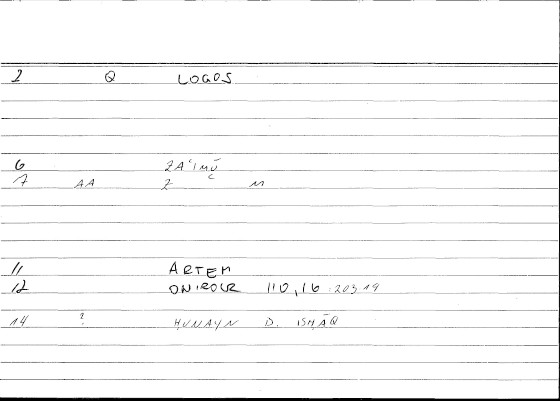 2 Q LOGOS
6 ZA'IMŪ
7 AA Z M
11 ARTEM
12 ONIROCR 110,16 : 203 19
14 ? ḤUNAYN B. ISḤĀQ